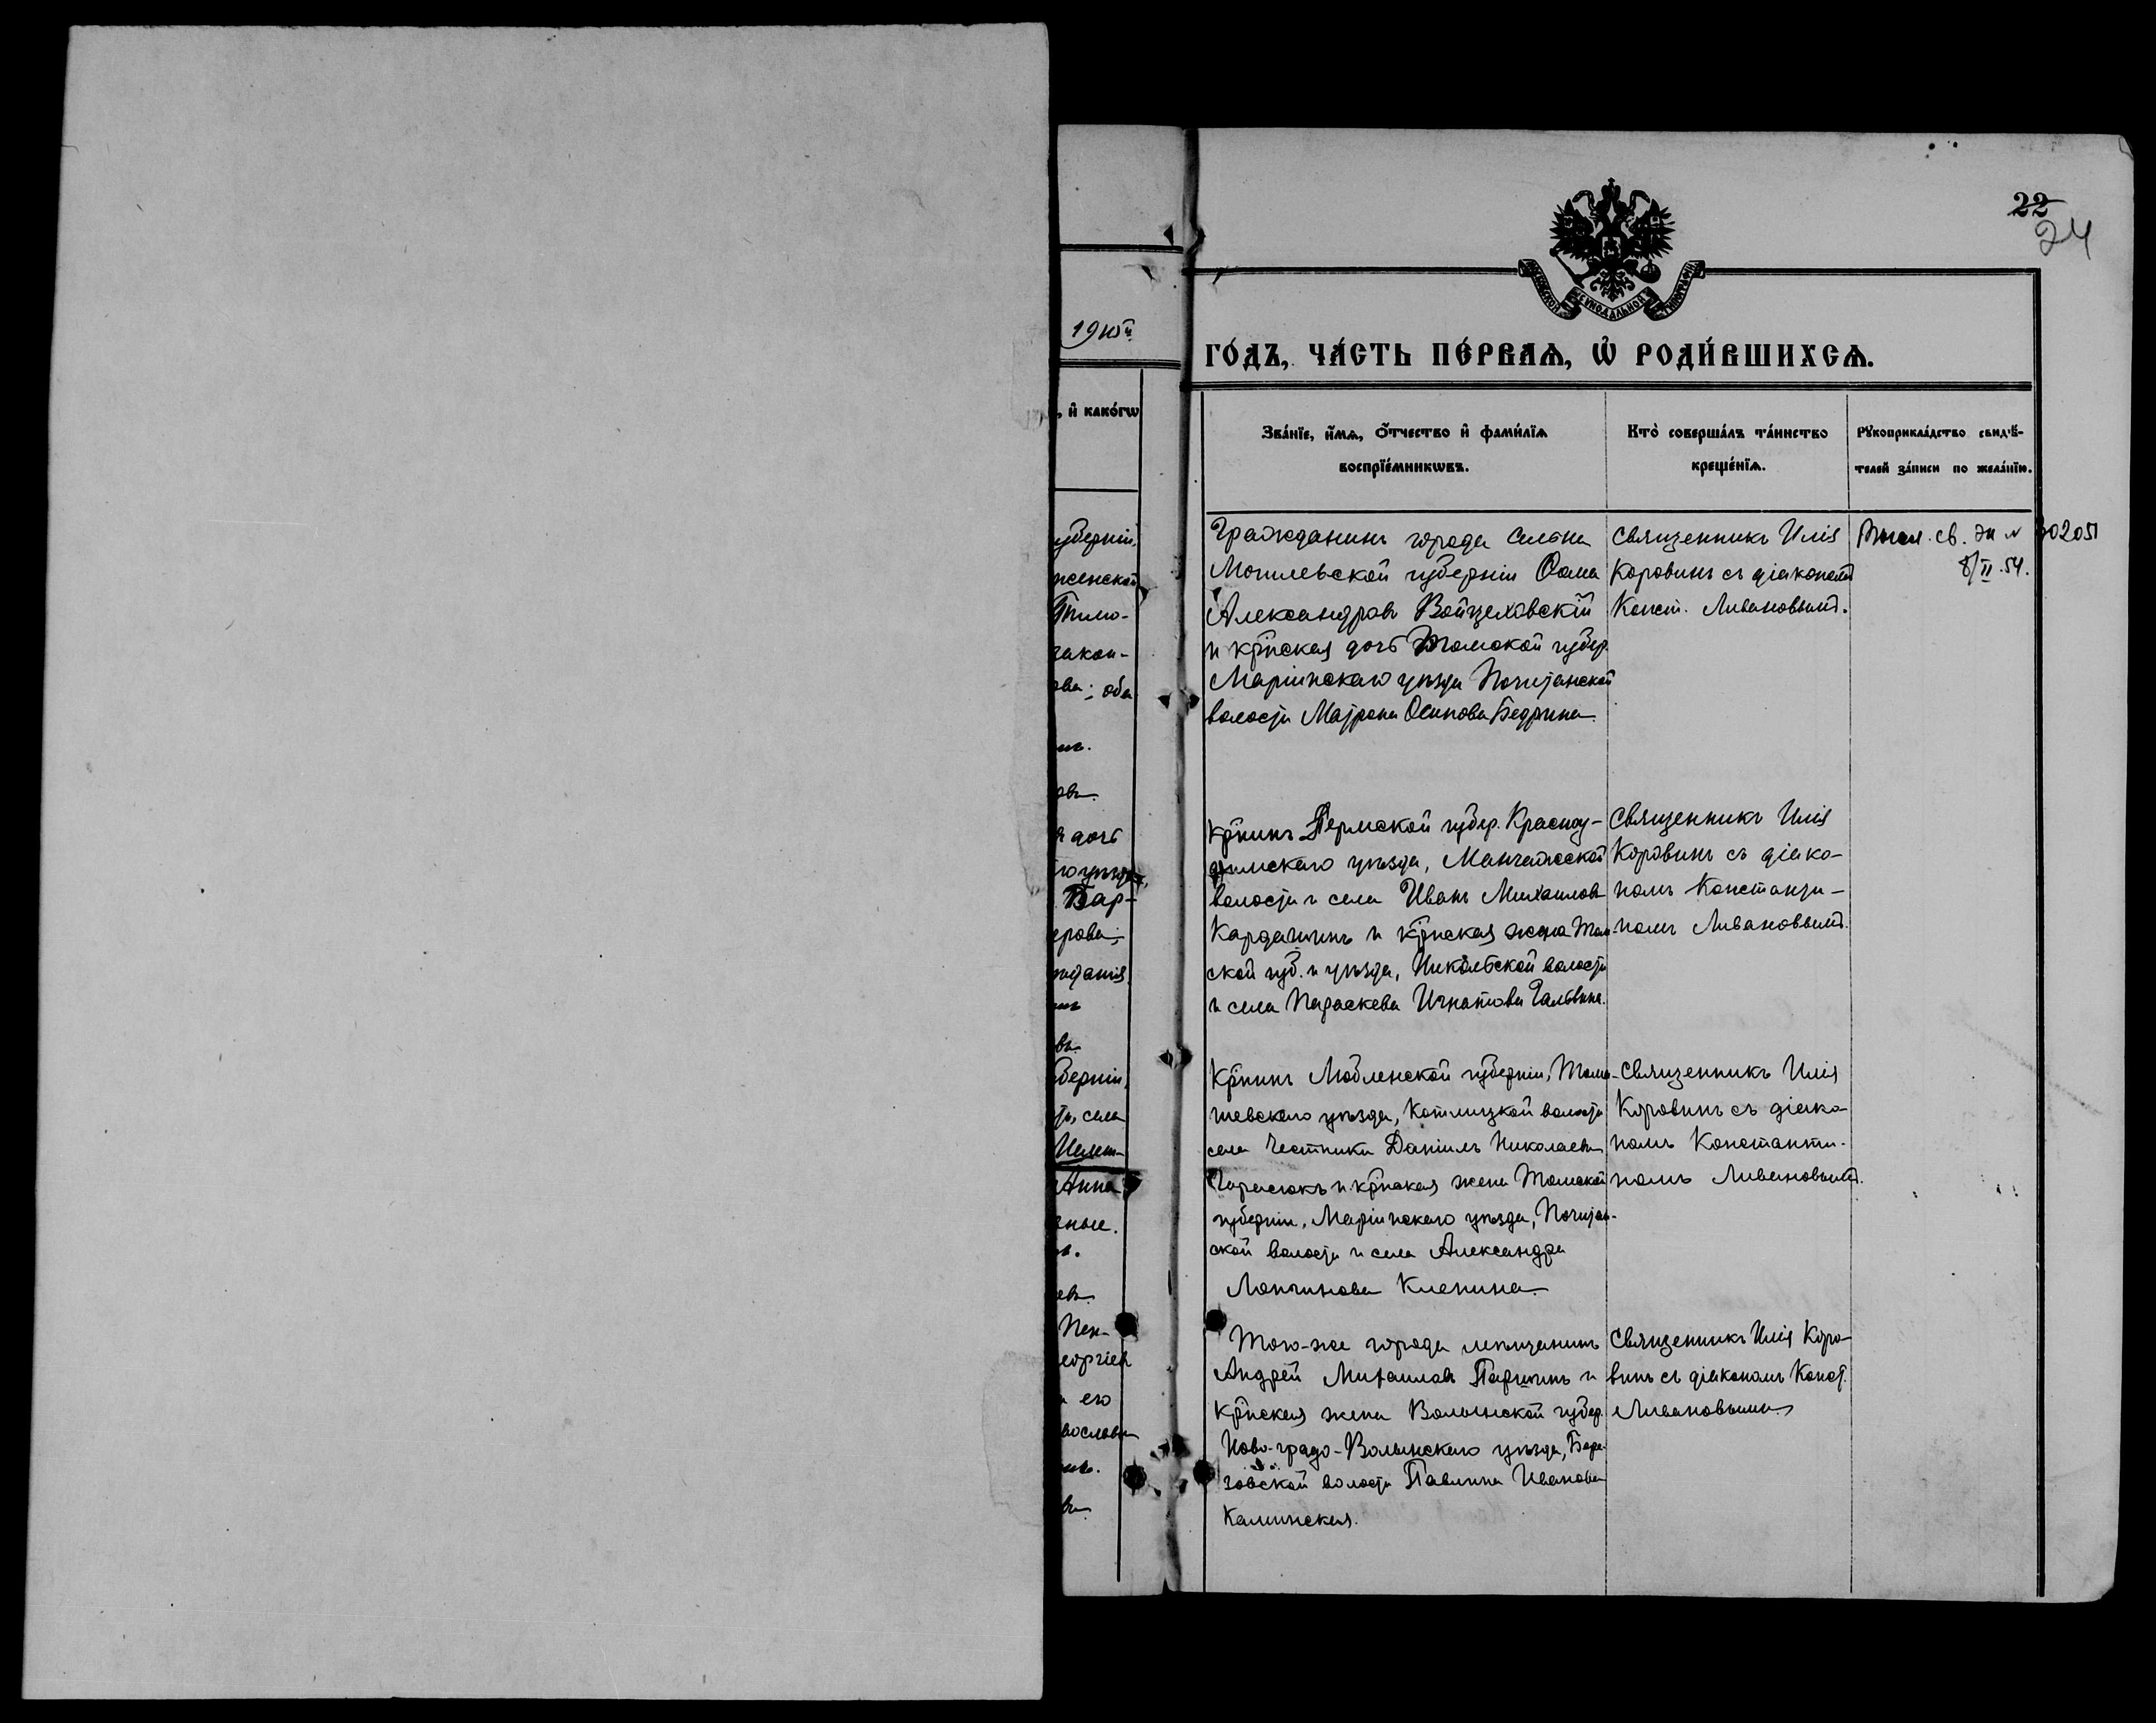 22
24
МОСКОВСКОЙ СѴНОДАЛЬНОЙ ТИПОГРАФІИ
1910й
ГО́ДЪ, ЧА́СТЬ ПЕ́РВАѦ, Ѡ҆ РОДИ́ВШИХСѦ.
, и҆ како́гѡ
Зва́нїе, и҆́мѧ, ѻ҆́тчество и҆ фами́лїѧ
воспрїе́мникѡвъ.
Кто̀ соверша́лъ та́инство
креще́нїѧ.
Рꙋкоприкла́дство свидѣ́-
телей за́писи по жела́нїю.
уберніи,
женской
Тимо-
закон-
ова; оба
овъ.
я дочь
го уѣзда,
Вар-
ерова;
берніи,
села
Анна
зные.
евъ.
еоргіев
и его
вославн
Гражданинъ города
Могилевской губерніи Ѳома
Александровъ Войцеховскій
и кр̃нская дочь Томской губер.
Маріинскаго уѣзда Почитанской
волости Матрона Осипова Бедрина.
Священникъ Илія
Коровинъ съ діакономъ
Конст. Ливановымъ.
св. № 302051
8/II.54.
Кр̃нинъ Пермской губер. Красноу-
фимскаго уѣзда, Манчажской
волости и села Иванъ Михаиловъ
Кардашинъ и кр̃нская жена Том-
ской губ. и уѣзда, Никольской волости
и села Параскева Игнатова Гальвина.
Священникъ Илія
Коровинъ съ діако-
номъ Константи-
номъ Ливановымъ.
Кр̃нинъ Люблинской губерніи, Тома-
шевскаго уѣзда, Котлицкой волости
села Честники Даніилъ Николаевъ
Тарасюкъ и кр̃нская жена Томской
губерніи, Маріинскаго уѣзда, Почитан-
ской волости и села Александра
Логгинова Кленина.
Священникъ Илія
Коровинъ съ діако-
номъ Константи-
номъ Ливановымъ.
Того-же города мѣщанинъ
Андрей Михаиловъ Паршинъ и
кр̃нская жена Волынской губер.
Ново-градо-Волынскаго уѣзда, Бере-
зовской волости Павлина Иванова
Каминская.
Священникъ Илія Коро-
винъ съ діакономъ Конст.
Ливановымъ.